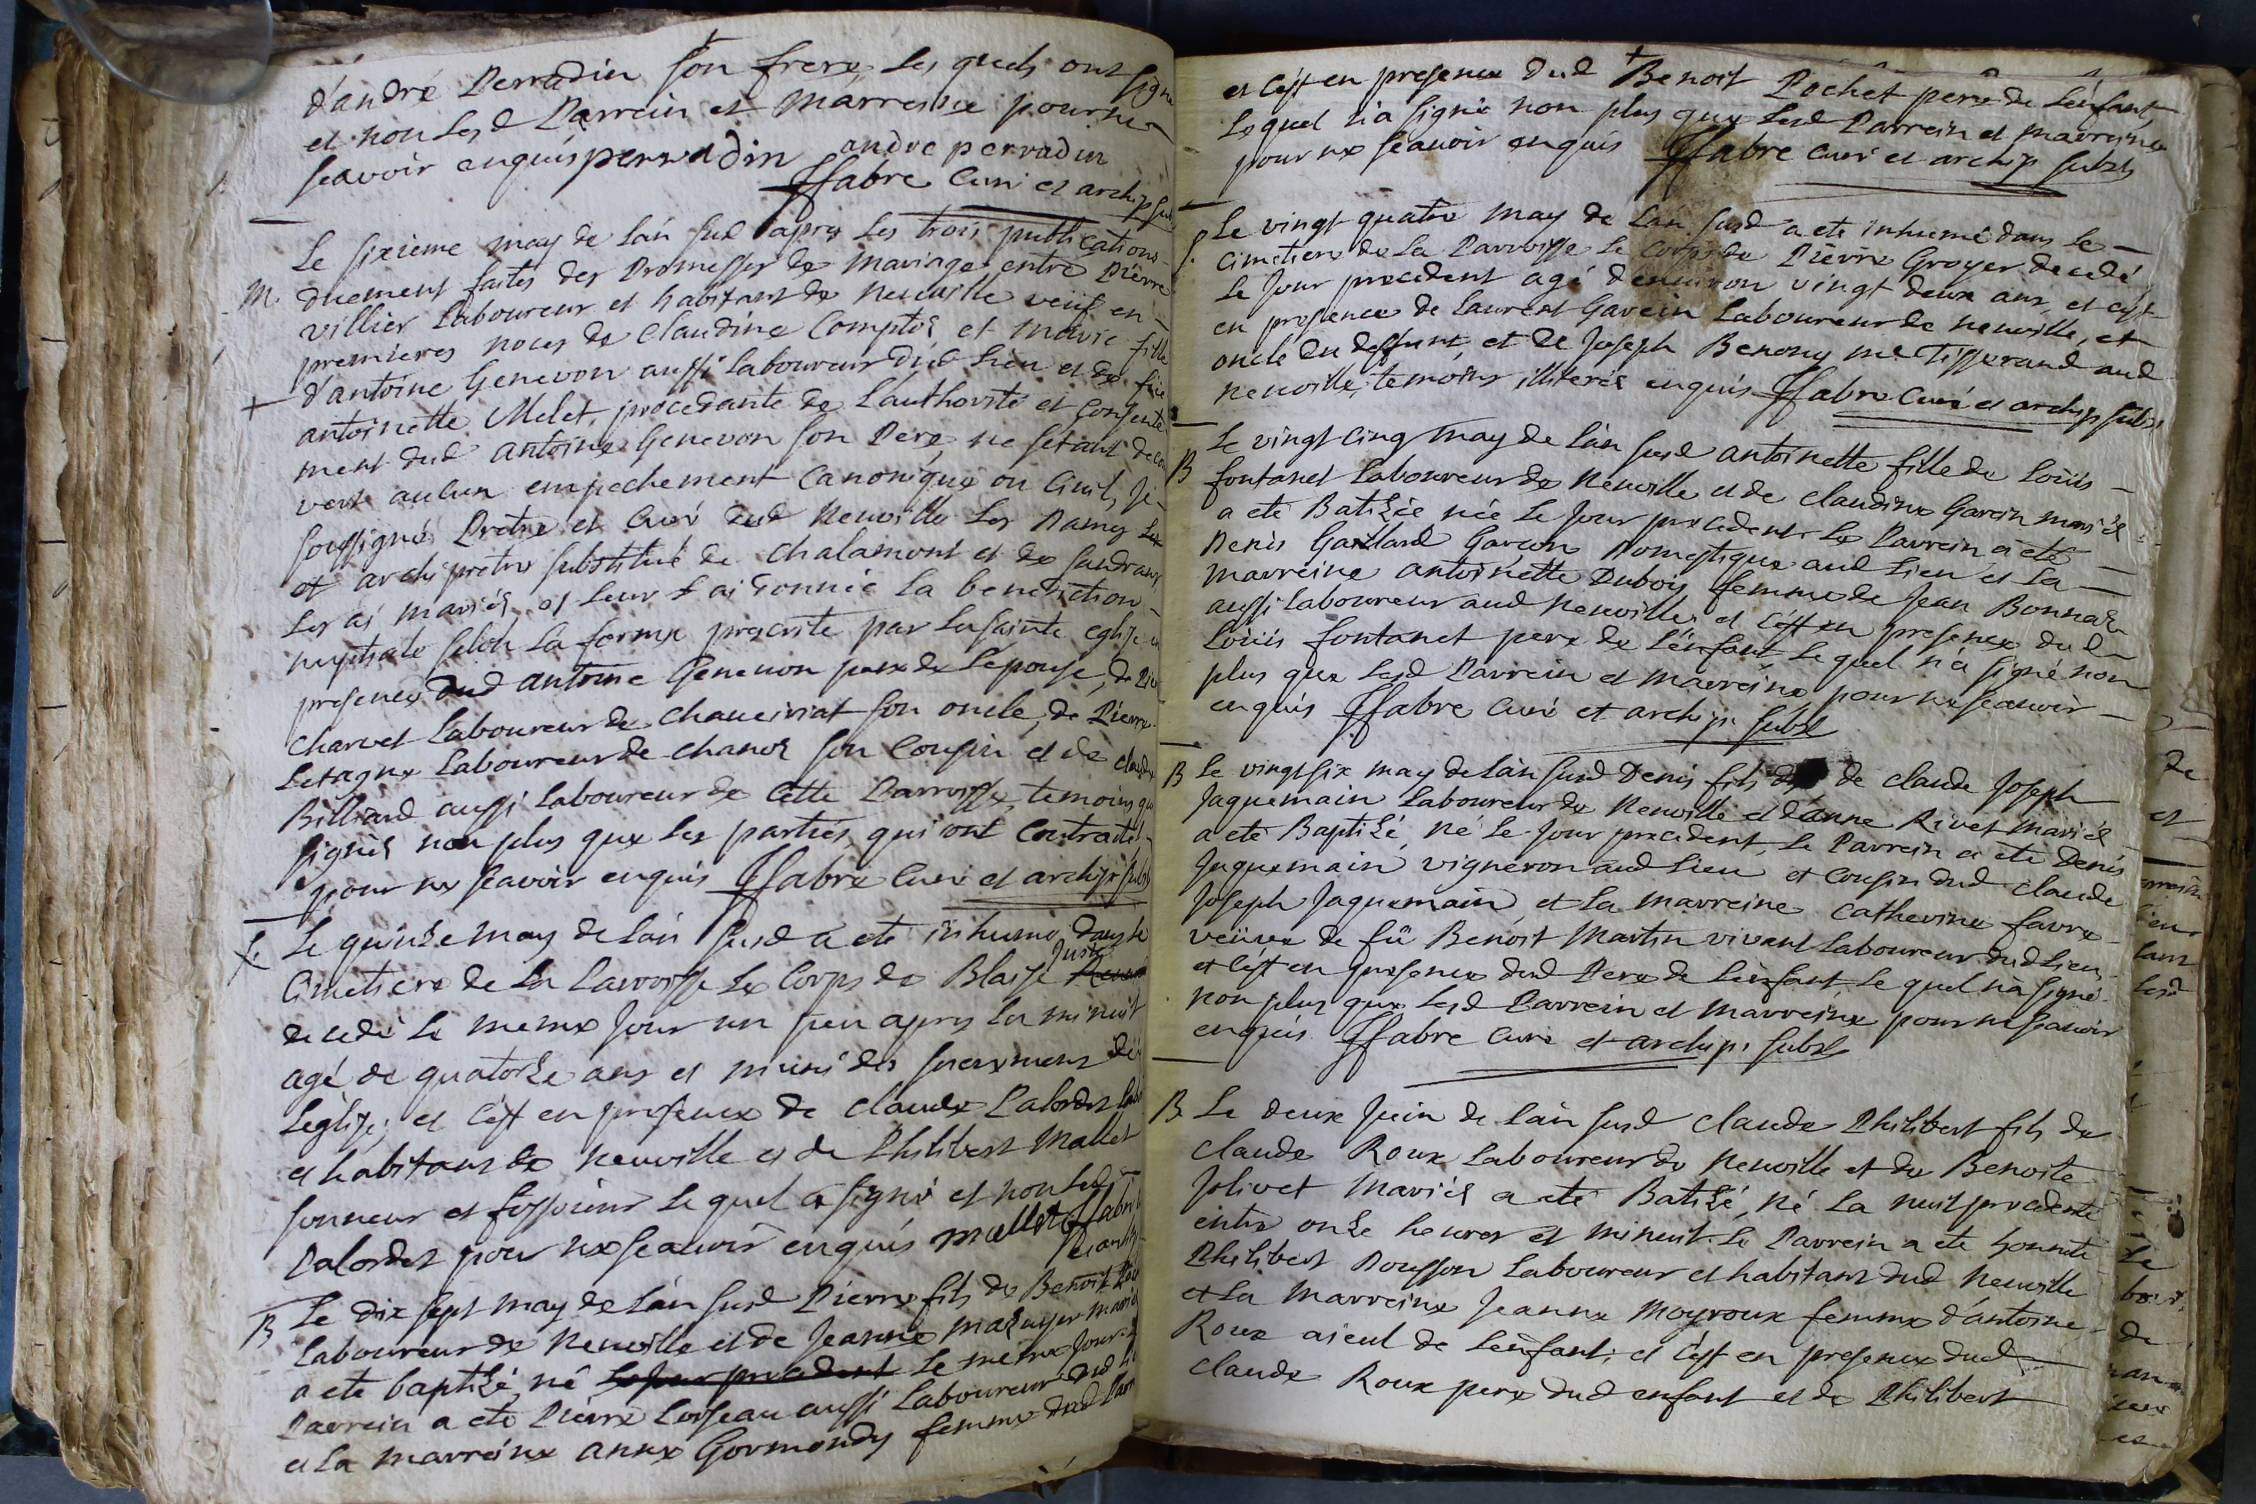 d'andré Perradin son frere les quels ont signé
et non lesd Parrein et Marreine pour ne
scavoir enquis perradin andre perradin
ffabre Curé et archip sub
Le sixieme may de lán sud apres les trois publications
M. duement faites des Promesses de mariage entre Pierre
villier Laboureur et habitant de Neuville veüf en
premieres noces de claudine Comptois et marie fille
d'antoine Genevon aussi laboureur dud Lieu et de füe
antoinette Melet, procedante de L'authorité et consente
ment dud antoine Genevon son Pere, ne sétant decou
vert aucun empechement Canonique ou Civil, je
soussigné Pretre et Curé dud Neuville Les Dames
et archipretre substitué de chalamont et de sandrans
les ai mariés et leur ai donnée la benediction
nuptiale selon la forme prescrite par la sainte eglise en
presence dud antoine Genevon pere de l'epouse, de
charvet Laboureur de chaveiriat son oncle, de Pierre
Letagne Laboureur de chanos son cousin et de claude
Billiard aussi laboureur de cette Parroisse temoins
signés non plus que les parties qui ont contracté
pour ne scavoir enquis ffabre Curé et archip subs
S. Le quinze may de lán susd a eté inhumé dans le
Cimetiere de la Parroisse le Corps de Blaise
decedé le meme jour un peu apres la minuit
agé de quatorze ans et muni des sacremens de
Léglise, et c'est en presence de claude Palordet lab
et habitant de Neuville et de Philibert Mallet
sonneur et fossoieur le quel a signé et non led
Palordet pour ne scavoir enquis mallet ffabre
B Le dix sept may de lán susd Pierre fils de Benoit
Laboureur de Neuville et de Jeanne mariés
a eté baptizé né le jour precedent le meme jour
Parrein a eté Pierre Loiseau aussi Laboureur dud
et la marreine anne Gormondy femme dud
et c'est en presence dud Benoit Pochet pere de lénfant,
lequel n'a signé non plus que lesd Parrein et marreine
pour ne scavoir enquis ffabre curé et archip subst
S. Le vingt quatre may de lán susd a eté inhumé dans le
cimetiere de la Parroisse le corps de Pierre Groyer decedé
le jour precedent agé denviron vingt deux ans, et c'est
en presence de laurent Garein Laboureur de neuville, et
oncle du deffunt, et de Joseph Benony me Tisserand aud
neuville, temoins illiterés enquis ffabre Curé et archip subst
B Le vingt cinq may de lán susd antoinette fille de Loüis
fontanet Laboureur de Neuville et de claudine Garein mariés
a eté Batizée née le jour precedent. Le Parrein a eté
Denis Gaillard Garcon Domestique aud Lieu et la
marreine antoinette Dubois femme de Jean Bonnar
aussi laboureur aud neuville, et c'est en presence dud
Loüis fontanet pere de lénfant, le quel n'a signé non
plus que lesd Parrein et marreine pour ne scavoir
enquis ffabre Curé et archip. subst
B Le vingt six may de lán susd Denis fils de claude Joseph
Jaquemain Laboureur de Neuville et dánne Rivet mariés
a eté Baptizé, né le jour precedent, le Parrein a eté Denis
Jaquemain vigneron aud Lieu et Cousin dud claude
Joseph Jaquemain et la marreine Catherine favre
veüve de fü Benoit Martin vivant Laboureur dud Lieu,
et c'est en presence dud Pere de lénfant le quel n'a signé
non plus que lesd Parrein et marreine pour ne scavoir
enquis ffabre curé et archip. subst
B. Le deux Juin de lán susd claude Philibert fils de
claude Roux Laboureur de Neuville et de Benoite
Jolivet mariés a eté Batizé, né la nuit precedente
entre onze heures et minuit. Le Parrein a eté honnete
Philibert Pousson Laboureur et habitant dud Neuville
et la marreine Jeanne Moyroux femme d'antoine
Roux aieul de lénfant, et c'est en presence dud
claude Roux pere dud enfant et de Philibert